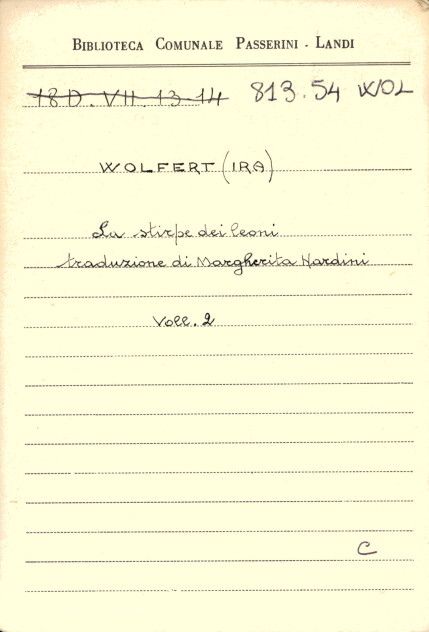 BIBLIOTECA COMUNALE PASSERINI - LANDI
18 D. VII. 13-14 813.54 WOL
WOLFERT (IRA)
La stirpe dei leoni
traduzione di Margherita Nardini
Voll. 2
C